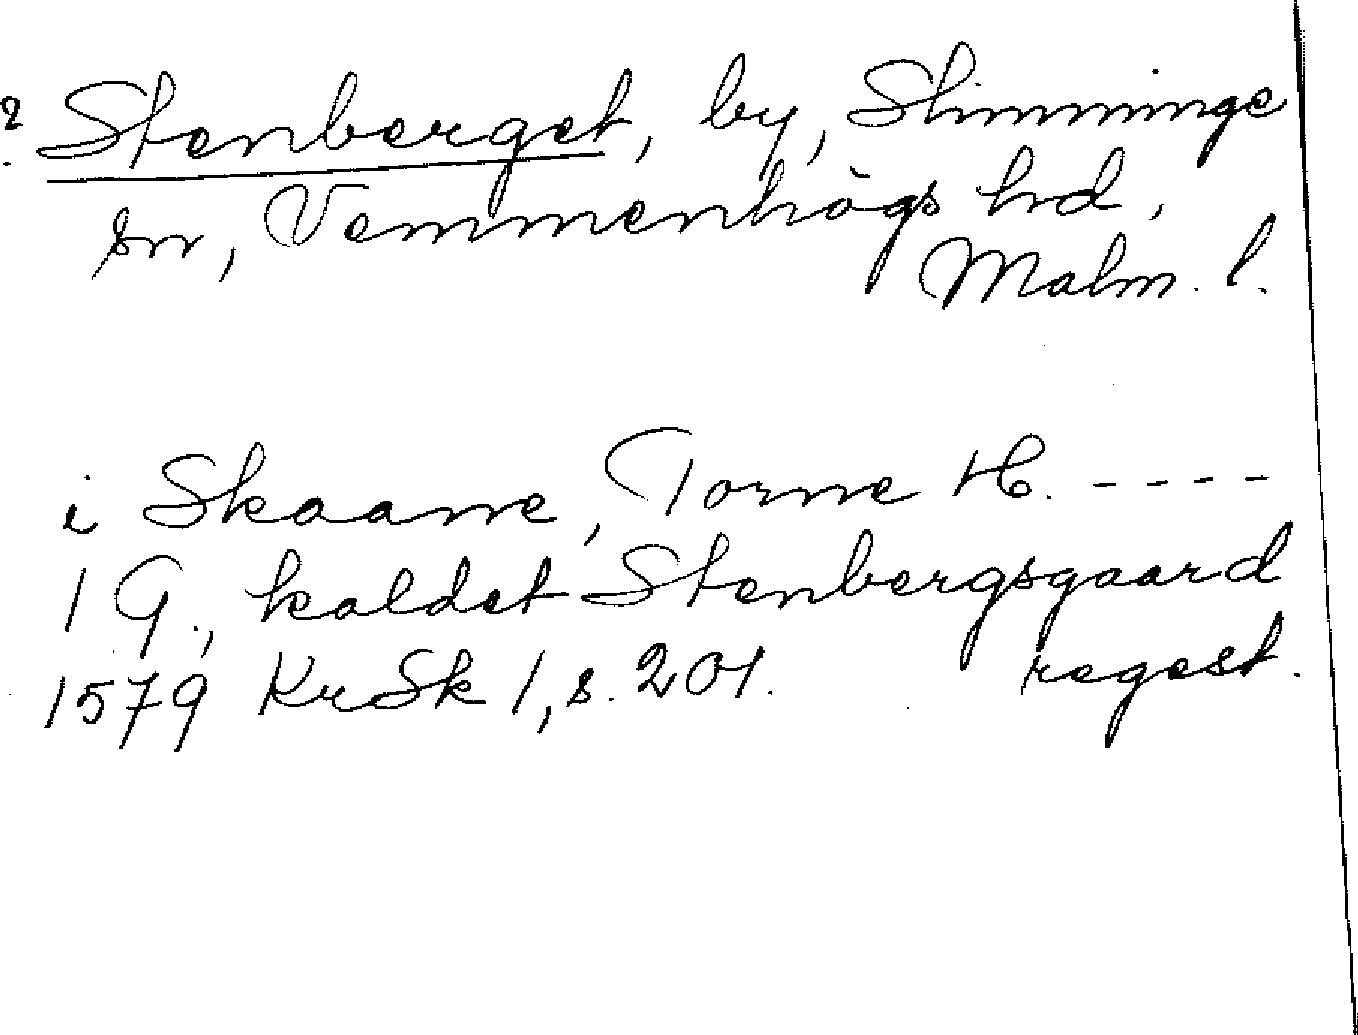 ? Stenberget, by, Slimminge
sn, Vemmenhögs hd,
Malm. l.
i Skaane, Torne H. ----
1 G., kaldet Stenbergsgaard
1579 KrSk 1, s. 201. regest.